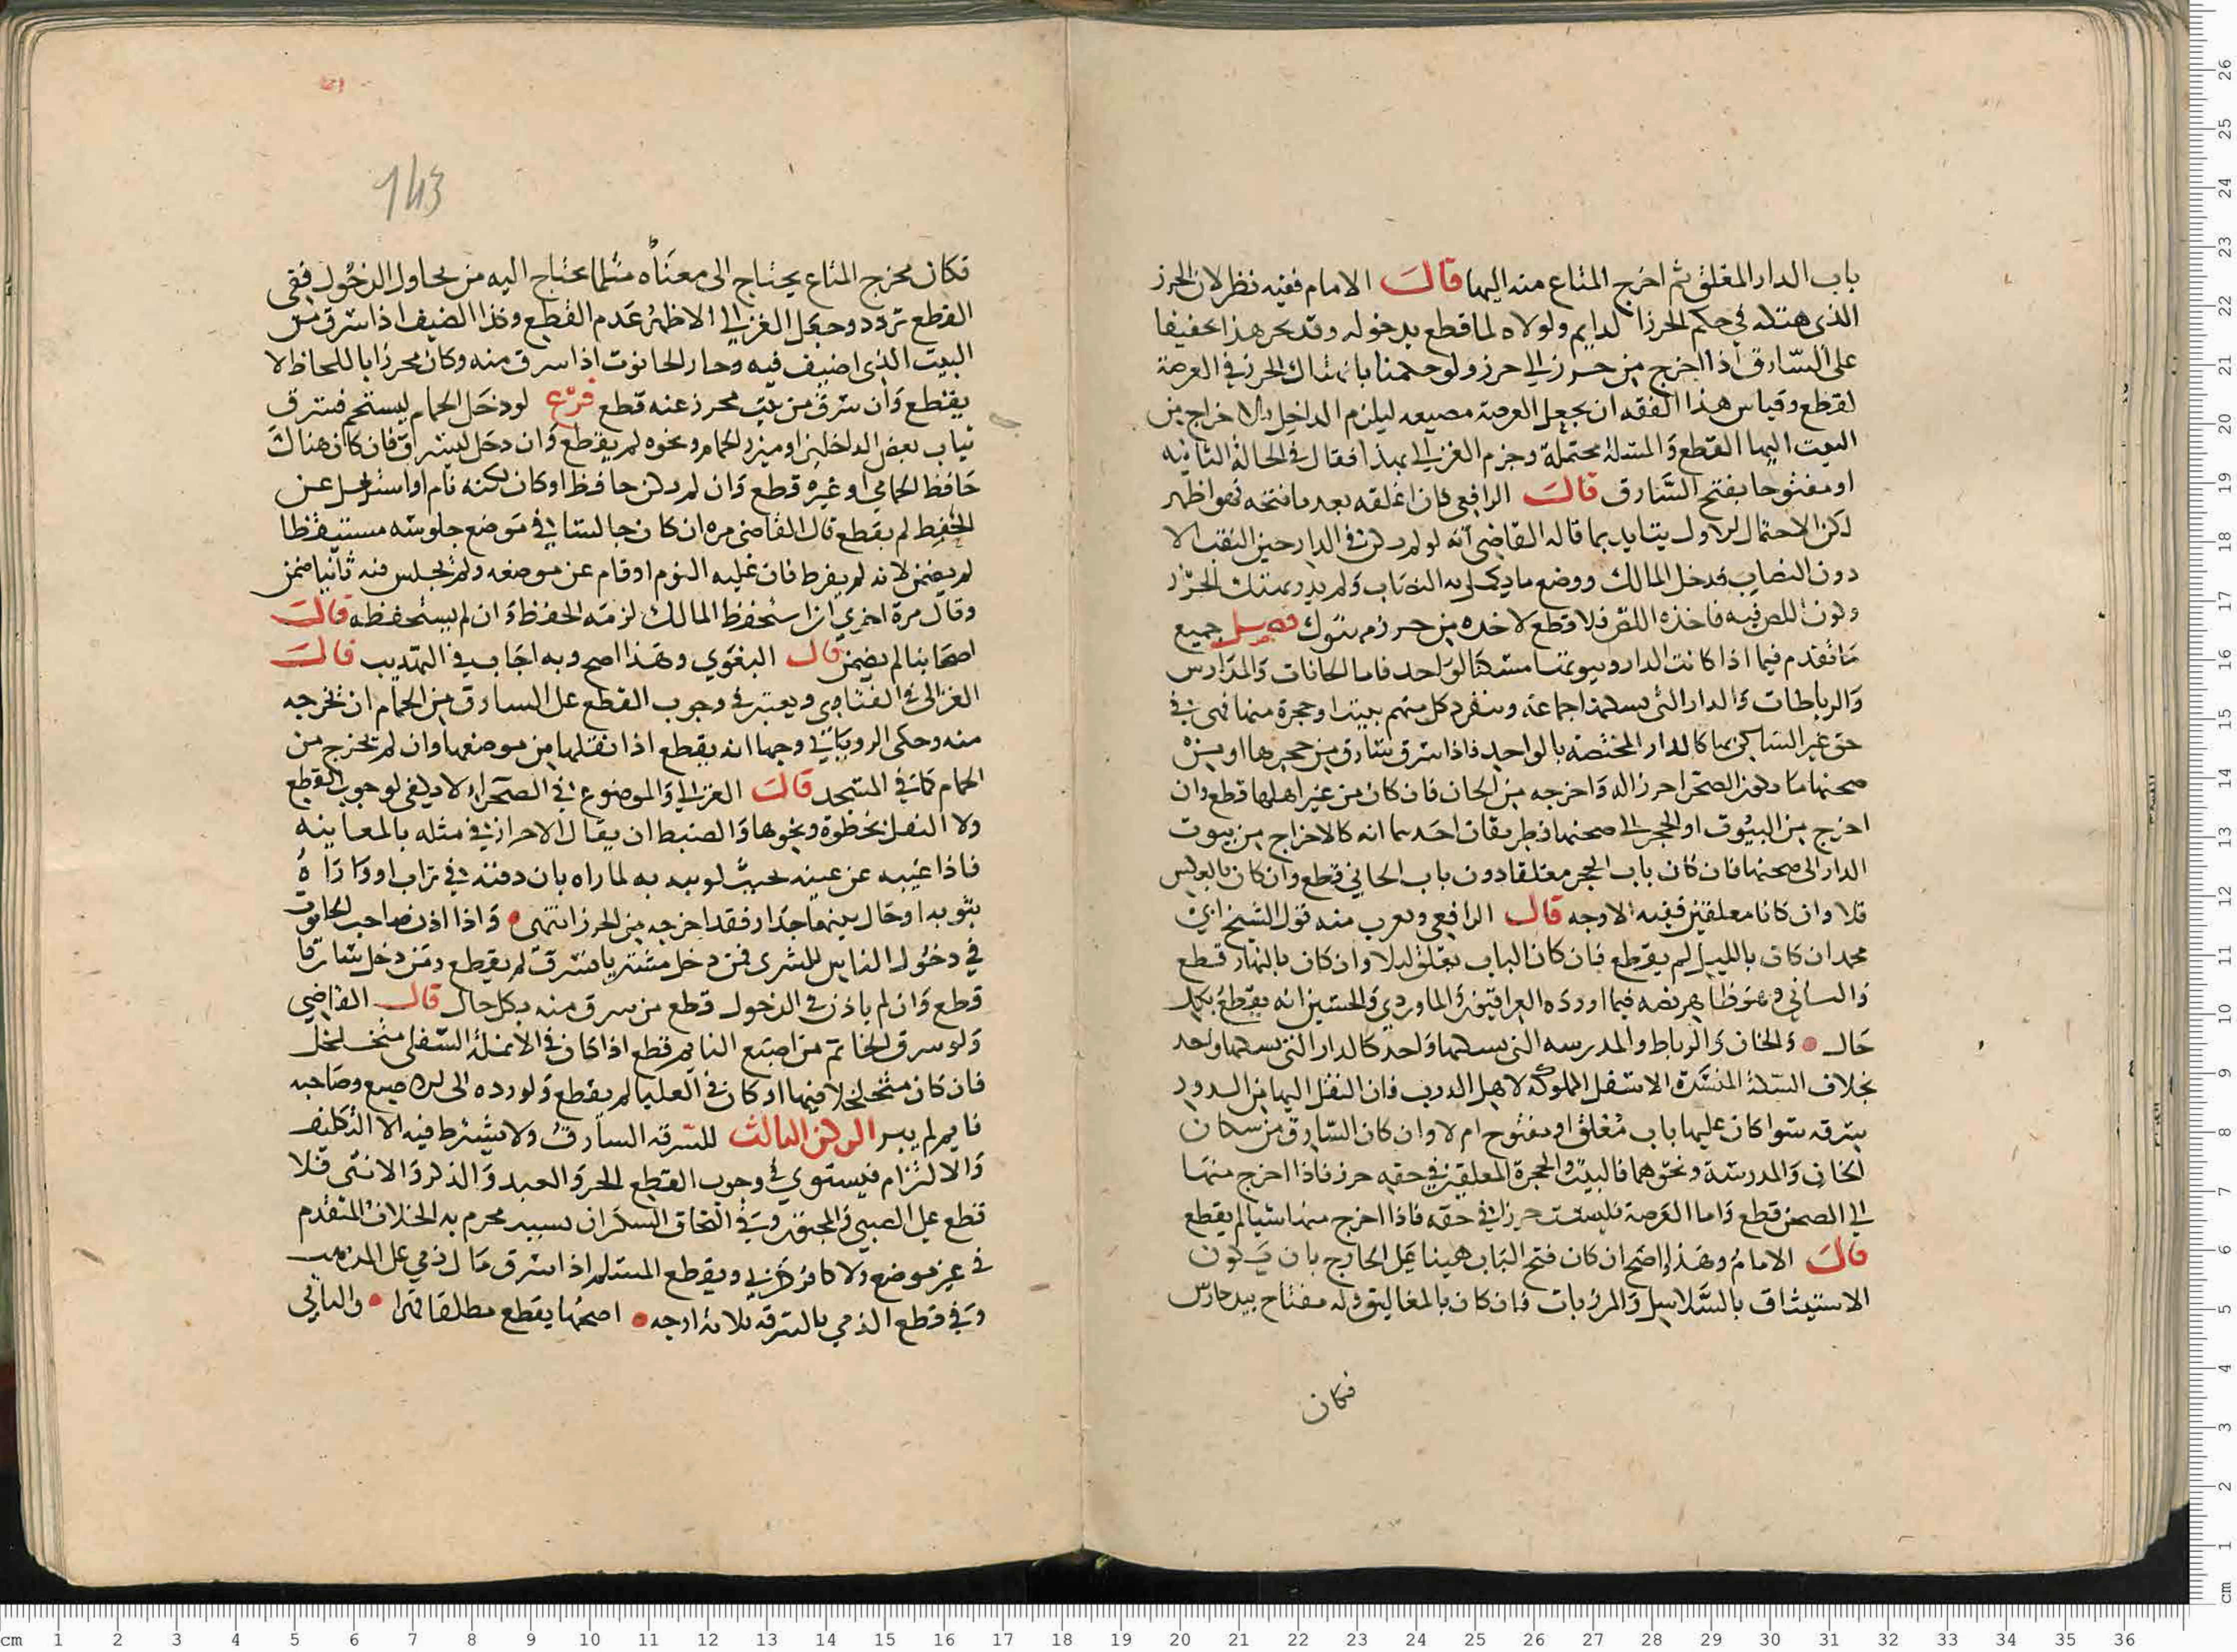 باب الدار المغلق ثم اخرج المتاع منه اليها قالَ الامام ففيه نظر لان الحرز
الذي هتكه في حكم الحرز الدايم ولولاه لما قطع بدخوله وقد يجر هذا تخفيفا
على السّارق اذا اخرج من حرز الى حرز ولو حكمنا بانهتاك الحرز في العرصة
لقطع وقياس هذا الفقه ان يجعل العرصة مضيعه ليلزم الداخل بالاخراج من
البيت اليها القطع وَالمسئلة محتملة وجزم الغزالي بهذا فقال في الحالة الثانيه
او مفتوحا بفتح السَّارق قالَ الرافعي فان اغلقه بعد ما فتحه فهو اظهر
لكن الاحتمال الاول يتايد بما قاله القاضي أنه لو لم يكن في الدار حين النقب الا
دون النصاب فدخل المالك ووضع ما يكمل به النصَاب وَلم يدر بهتك الحرز
وكون اللص فيه فاخذه اللص فلا قطع لاخذه من حرز مهتوك فصل جميع
مَا تقدم فيما اذا كانت الدار وبيوتها مسكنا لواحد فاما الخانات وَالمدَارس
وَالرباطات وَالدار التي يسكنها جماعة وينفرد كل منهم ببيت او حجرة منها فهي في
حق غير السَاكن بها كالدار المختصة بالواحد فاذا سرق سَارق من حجرها او من
صحنها ما يكون الصحن احرزا له وَاخرجه من الخان فان كان من غير اهلها قطع وان
اخرج من البيُوت او الحجر الى صحنها فطريقان احَدهما انه كالاخراج من بيوت
الدار الى صحنها فان كان باب الحجر مغلقا دون باب الخان قطع وان كان بالعكس
فلا وان كانا مغلقين ففيه الاوجه قال الرافعي ويقرب منه قول الشيخ ابي
محمد ان كان بالليل لم يقطع فان كان الباب يغلق ليلا وان كان بالنهار قطع
وَالثاني وهو ظاهر نصه فيما اورده العراقيون وَالماوردي وَالحسين انه يقطع بكل
حَال • وَالخان وَالرباط والمدرسه التي يسكنها وَاحد كالدار التي يسكنها واحد
بخلاف السكة المنسدة الاسفل المملوكة لاهل الدرب فان النقل اليها من الدور
سرقه سوا كان عليها باب مُغلق او مفتوح ام لا وان كان السّارق من سكان
الخان وَالمدرسَة ونحوهما فالبيت والحجرة المغلقين في حقه حرز فاذا اخرج منهَا
الى الصحن قطع وَاما العَرصة فليست حرزا في حقه فاذا اخرج منها شيا لم يقطع
قالَ الامام وهَذا واضح ان كان فتح البَاب هينا على الخارج بان يَكون
الاستيثاق بالسَّلاسل وَالمرزبات فان كان بالمغاليق وله مفتاح بيد حارس
فكان
143
فكان مخرج المتاع يحتاج الى معنَاه مثلما يحتاج اليه من يحاول الدخُول ففي
القطع تردد وجعَل الغزالي الاظهرُ عَدم القطع وكذا الضيف اذا سَرق من
البيت الذي اضيف فيه وجار الحانوت اذا سرق منه وكان محرزا باللحاظ لا
يقطع وَان سَرق من بيت محرز عنه قطع فرْع لو دخَل الحمام ليستحم فسَرق
ثياب بعض الداخلين او ميزر الحمام ونحوه لم يقطع وَان دخَل ليسرق فان كان هناك
حَافظ الحمامي او غيره قطع وَان لم يكن حافظ او كان لكنه نام او اشتغل عن
الحفظ لم يقطع قال القاضي مره ان كان جالسًا في مَوضع جلوسه مستيقظا
لم يضمن لانه لم يفرط فان غلبه النوم او قام عن موضعه ولم يجلس فيه ثانيا ضمن
وقال مرة اخري ان استحفظ المالك لزمَه الحفظ وَان لم يستحفظه قالَ
اصحَابنا لم يضمن قال البغوي وهَذا اصح وبه اجَاب في التهذيب قالَ
الغزالى في الفتاوي ويعتبر في وجوب القطع على السارق من الحمام ان يخرجه
منه وحكى الروياني وجها انه يقطع اذا نقلها من موضعها وان لم يخرج من
الحمام كما في المسجد قالَ الغزالي وَالموضوع في الصحراء لا يكفي لوجوب القطع
ولا النقل بخطوة ونحوها وَالضبط ان يقال الاحراز في مثله بالمعاينه
فاذا غيبه عن عينه بحيث لو بيد به لما راه بان دفنه في تراب او وَارَاهُ
بثوبه او حَال بينهما جدار فقد اخرجه من الحرز انتهى • وَاذا اذن صَاحب الحانوت
في دخُول الناس للشرى فمن دخل مشتريا فسَرق لم يقطع ومَن دخل سَارقا
قطع وَان لم ياذن في الدخول قطع من سرق منه بكل حال قال القاضي
وَلو سرق الخاتم من اصبَع النايم قطع اذا كان في الانملة السّفلى متخلخل
فان كان متخلخلا فيها او كان في العليا لم يقطع وَلو رده الى اصبع وصَاحبه
نايم لم يبر الركن الثالث للسّرقه السارقُ ولا يشترط فيه الا التكليف
وَالالتزام فيستوي في وجوب القطع الحر وَالعبد وَالذكر وَالانثى فلا
قطع على الصبي وَالمجنون وَفي التحاق السكرَان بسبب محرم به الخلاف المتقدم
في غير موضع ولا كافر حَربي ويقطع المسلم اذا سَرق مَال ذمي على المذهب
وَفي قطع الذمي بالسرقه ثلاثة اوجه • اصحها يقطع مطلقا قهرا • والثاني